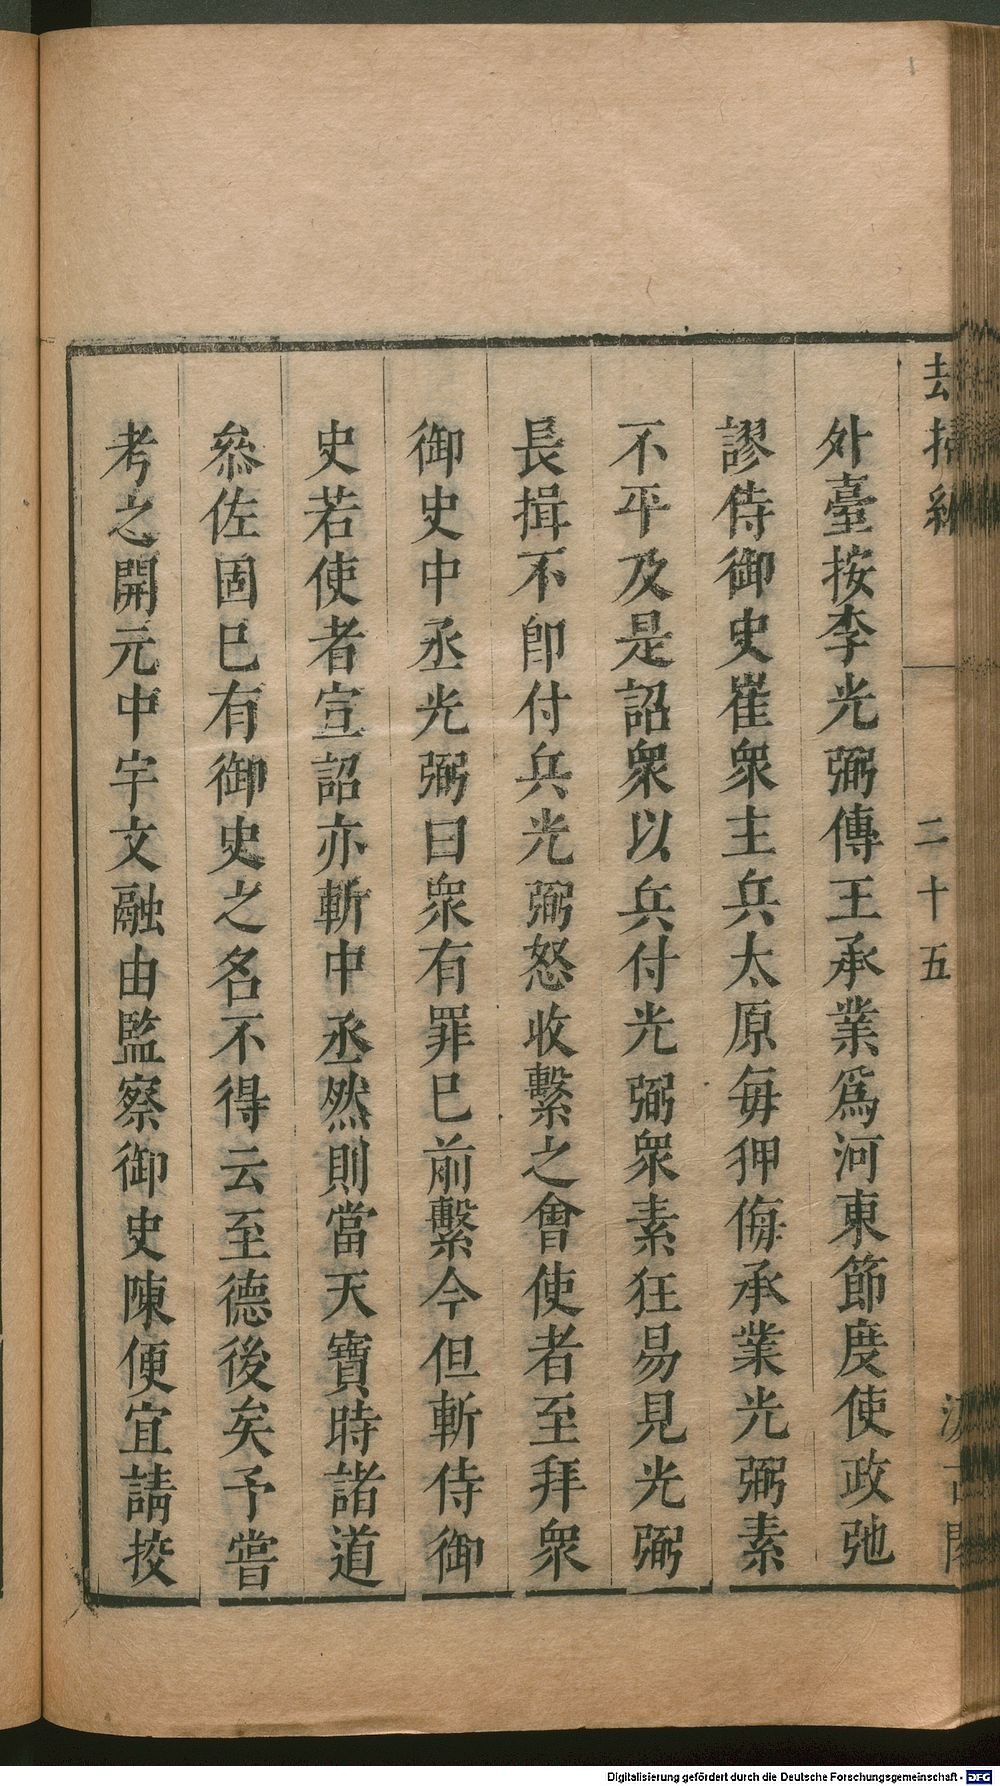 外臺按李光弼傳王承業爲河東節度使政弛
謬侍御史崔衆主兵太原每狎侮承業光弼素
不平及是詔衆以兵付光弼衆素狂易見光弼
長揖不卽付兵光弼怒收繫之會使者至拜衆
御史中丞光弼曰衆有罪巳前繫今但斬侍御
史若使者宣詔亦斬中丞然則當天寶時諸道
叅佐固巳有御史之名不得云至德後矣予嘗
考之開元中宇文融由監察御史陳便宜請挍
二十五
Digitalisierung gefördert durch die Deutsche Forschungsgemeinschaft - DFG